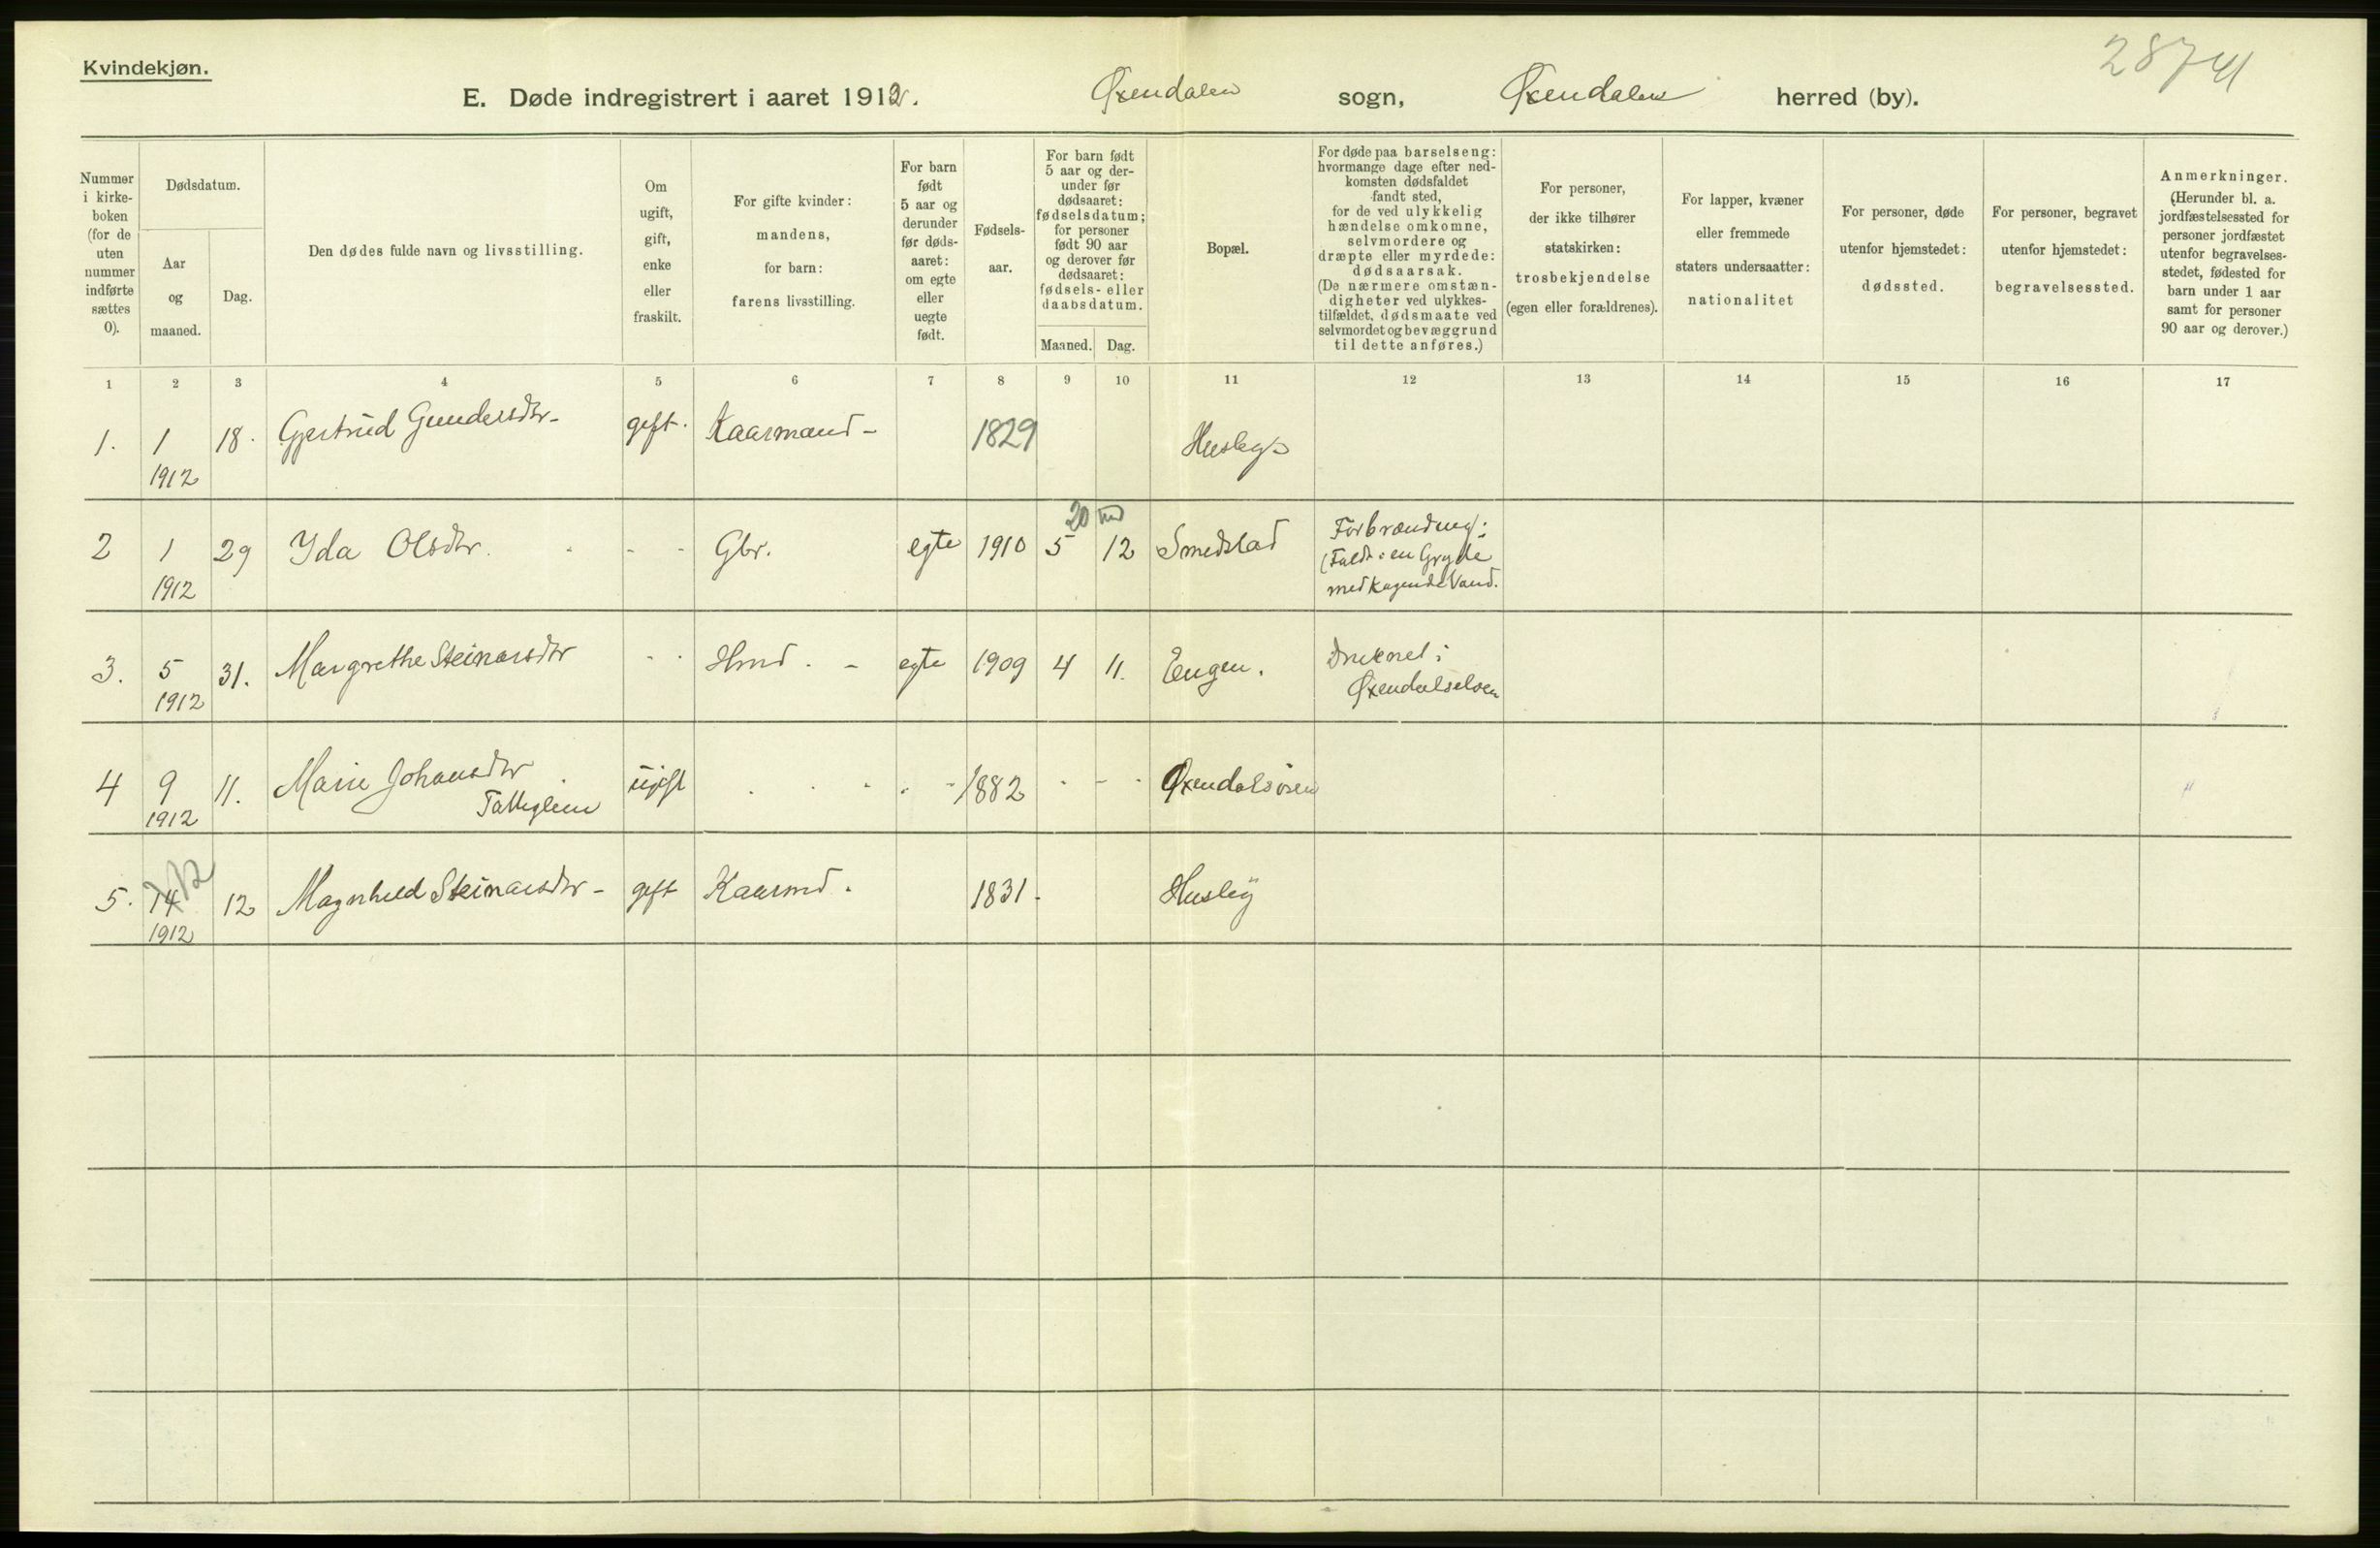 Kvindekjøn.
28741
E. Døde indregistrert i aaret 1912. Øxendalen sogn, Øxendalen herred (by).
Nummer
i kirke-
boken
(for de
uten
nummer
indførte
sættes
0).
Dødsdatum.
Aar
og
maaned.
Dag.
Den dødes fulde navn og livsstilling.
Om
ugift,
gift,
enke
eller
fraskilt.
For gifte kvinder:
mandens,
for barn:
farens livsstilling.
For barn
født
5 aar og
derunder
før døds-
aaret:
om egte
eller
uegte
født.
Fødsels-
aar.
For barn født
5 aar og der-
under før
dødsaaret:
fødselsdatum;
for personer
født 90 aar
og derover før
dødsaaret:
fødsels- eller
daabsdatum.
Maaned.
Dag.
Bopæl.
For døde paa barselseng:
hvormange dage efter ned-
komsten dødsfaldet
fandt sted,
for de ved ulykkelig
hændelse omkomne,
selvmordere og
dræpte eller myrdede:
dødsaarsak.
(De nærmere omstæn-
digheter ved ulykkes-
tilfældet, dødsmaate ved
selvmordet og bevæggrund
til dette anføres.)
For personer,
der ikke tilhører
statskirken:
trosbekjendelse
(egen eller forældrenes).
For lapper, kvæner
eller fremmede
staters undersaatter:
nationalitet
For personer, døde
utenfor hjemstedet:
dødssted.
For personer, begravet
utenfor hjemstedet:
begravelsessted.
Anmerkninger.
(Herunder bl. a.
jordfæstelsessted for
personer jordfæstet
utenfor begravelses-
stedet, fødested for
barn under 1 aar
samt for personer
90 aar og derover.)
1 2 3 4 5 6 7 8 9 10 11 12 13 14 15 16 17
1. 1 18. Gjertrud Gundersdtr - gift. Kaarmand - 1829 Husby
1912
20
2 1 29 Yda Olsdtr. - - Gbr. egte 1910 5 12 Smedstad Forbrænding:
(Faldt i en Gryde
1912 med kogende Vand.
3. 5 31. Margrethe Steinarsdtr - - Hmd. - egte 1909 4 11. Engen. Druknet i
1912 Øxendalselven
4 9 11. Marie Johansdtr ugift 1882 - - - Øxendalsøren
1912
12
5. 14 12 Magnhild Steinarsdtr - gift Kaarmd. 1831. Husby
1912